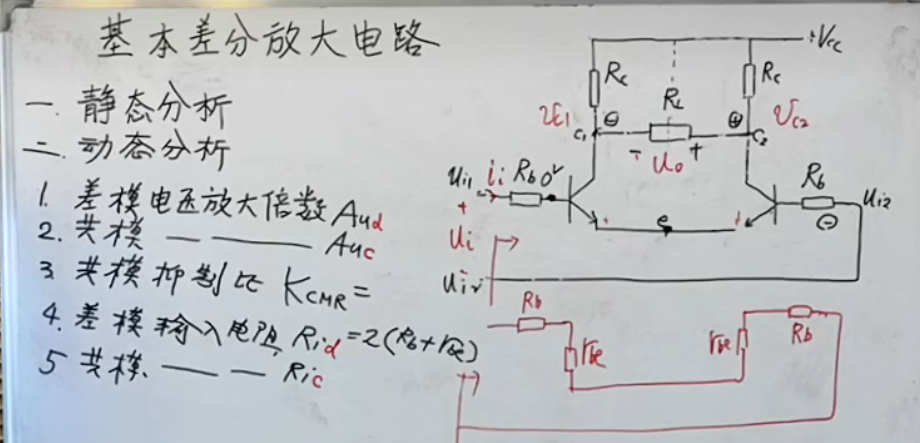 基本差分放大电路
一. 静态分析
二. 动态分析
1. 差模电压放大倍数 Aud
2. 共模 — —— Auc
3. 共模抑制比 KCMR =
4. 差模输入电阻 Rid = 2(Rb + rbe)
5 共模. — — Ric
+Vcc
Rc
Rc
RL
c1
⊖
⊕
c2
- uo +
ui1
ii
Rb
+
ui
-
e
Rb
ui2
⊖
Rb
rbe
rbe
Rb